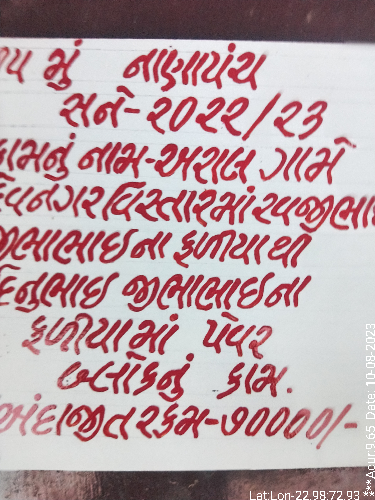 ૧૫ મું નાણાપંચ
સને-૨૦૨૨/૨૩
કામનું નામ-અરાલ ગામે
દેવનગર વિસ્તારમાં રવજીભાઇ
જીભાભાઇ ના ફળીયા થી
દિનુભાઇ જીભાભાઇ ના
ફળીયા માં પેવર
બ્લોકનું કામ.
અંદાજીત રકમ-૭૦૦૦૦/-
Lat:Lon-22.98:72.93
Date: 10-08-2023